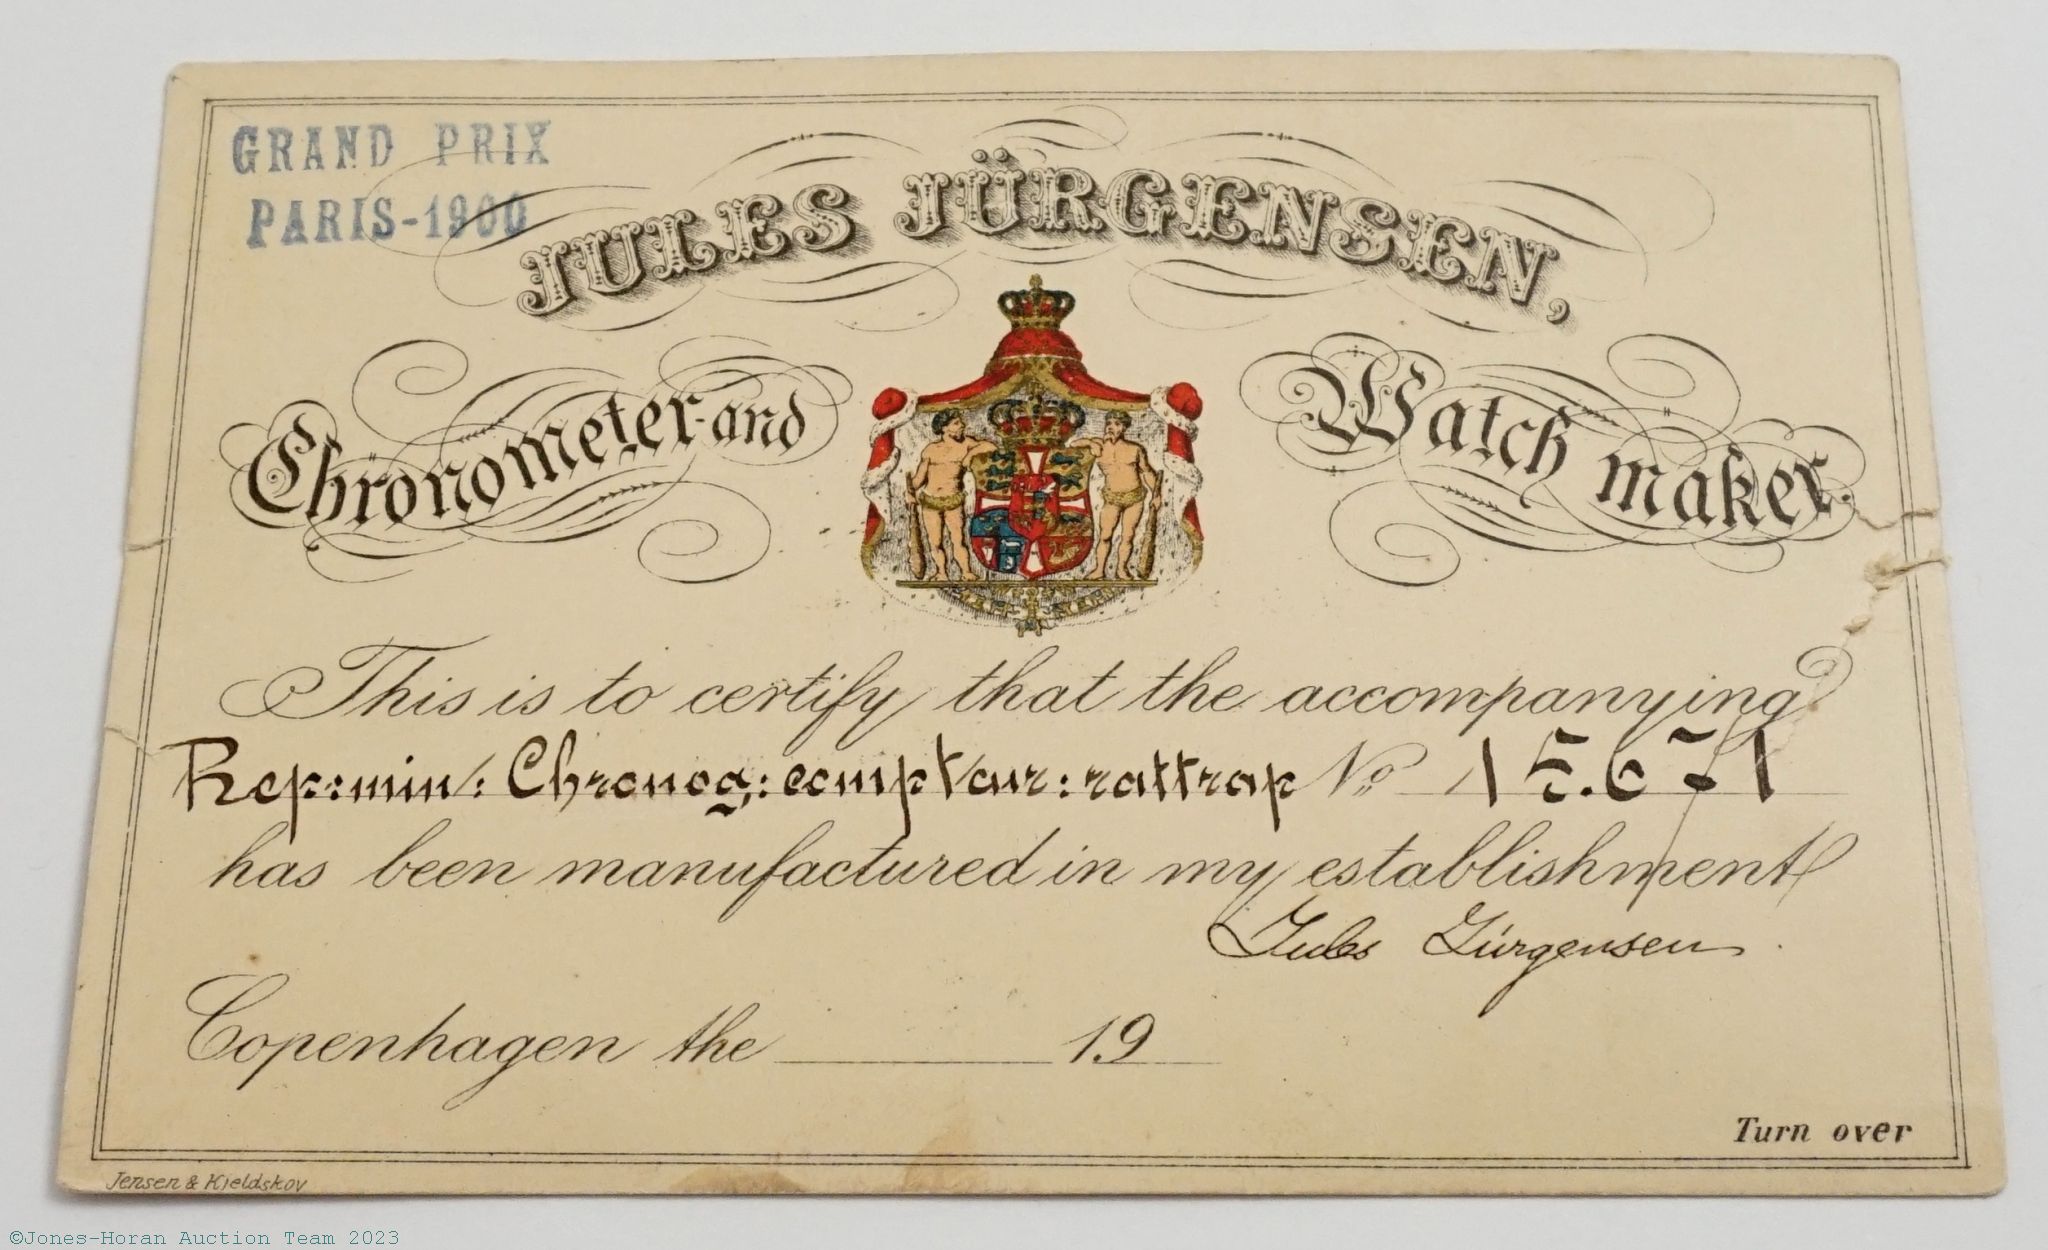 GRAND PRIX
PARIS-1900
JULES JÜRGENSEN,
Chronometer and Watch maker.
This is to certify that the accompanying
Rep:min/: Chronog: compteur: rattrap No 15.671
has been manufactured in my establishment
Jules Jürgensen.
Copenhagen the 19
Turn over
Jensen & Kjeldskov
©Jones-Horan Auction Team 2023